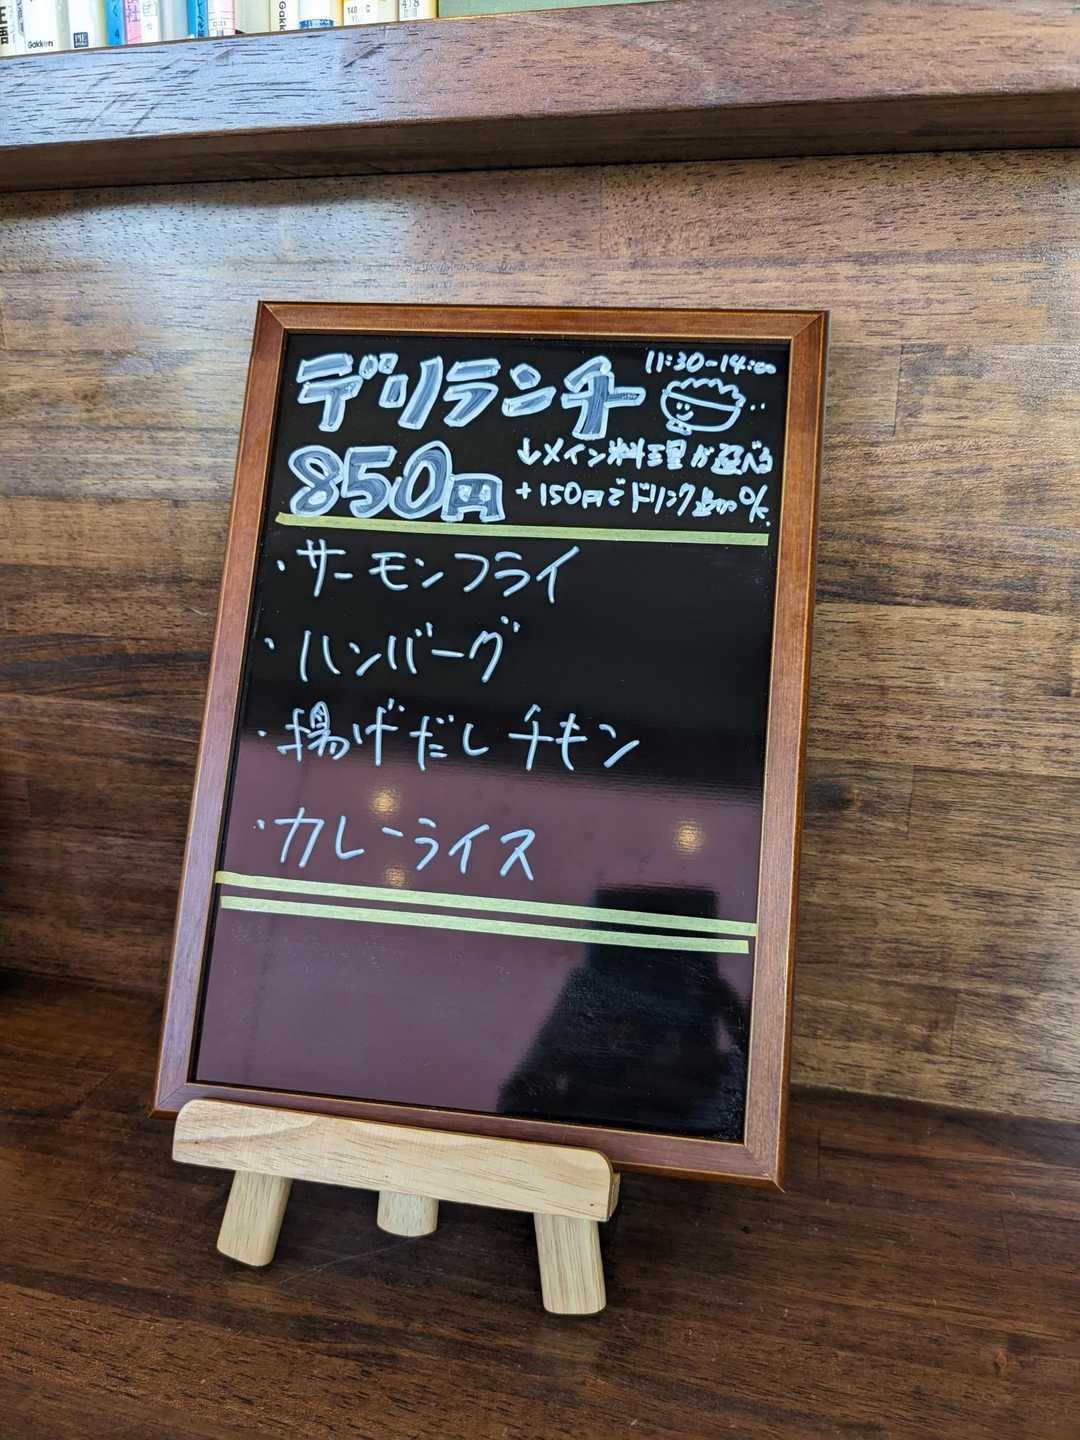 Gakken
デリランチ
11:30-14:00
850円
↓メイン料理が選べる
+150円でドリンク
OK.
・サーモンフライ
・ハンバーグ
・揚げだしチキン
・カレーライス